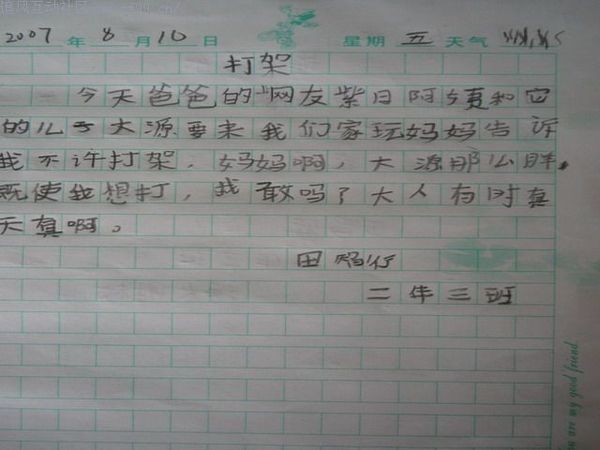 2007 年 8 月 10 日 星期 五 天气
打架
今天爸爸的"网友紫日阿姨和它
的儿子大源要来我们家玩妈妈告诉
我不许打架，妈妈啊，大源那么胖，
既使我想打，我敢吗？大人有时真
天真啊。
田
二年三班
you are my good friend.